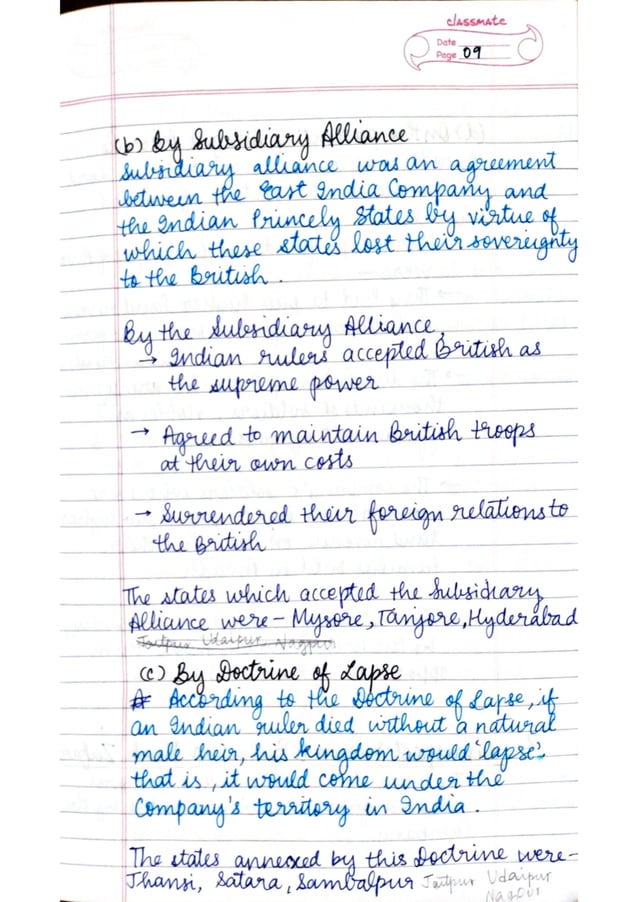 classmate
Date
Page 09
(b) By Subsidiary Alliance
Subsidiary alliance was an agreement
between the East India Company and
the Indian Princely States by virtue of
which these states lost their sovereignty
to the British.
By the Subsidiary Alliance,
→ Indian rulers accepted British as
the supreme power
→ Agreed to maintain British troops
at their own costs
→ Surrendered their foreign relations to
the British
The states which accepted the Subsidiary
Alliance were - Mysore, Tanjore, Hyderabad
Jaitpur Udaipur Nagpur
(c) By Doctrine of Lapse
According to the Doctrine of Lapse, if
an Indian ruler died without a natural
male heir, his kingdom would 'lapse',
that is, it would come under the
Company's territory in India.
The states annexed by this Doctrine were -
Jhansi, Satara, Sambalpur Jaitpur Udaipur
Nagpur